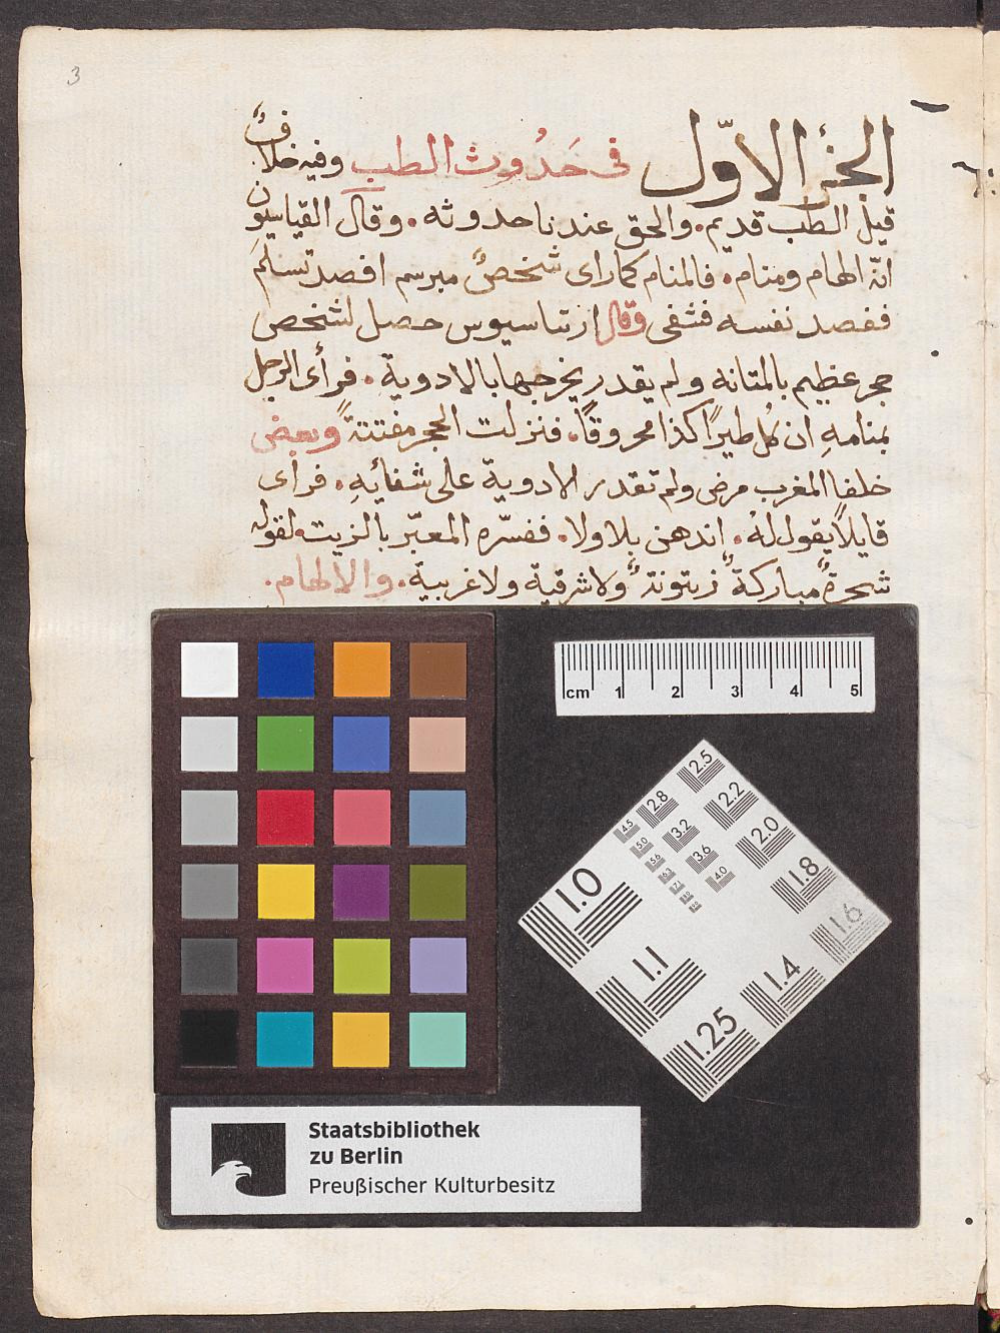 3
الجزُ الاوّل فى حَدُوث الطب وفيه خلافٌ
قيل الطب قديم. والحق عندنا حدوثه. وقال القياسيون
انّه الهام ومنام. فالمنام كما راى شخصٌ مبرسم افصد تسلم
ففصد نفسه فشفى وقال ارتباسيوس حصل لشخص
حجر عظيم بالمتانه ولم يقدر يخرجها بالادوية. فرأى الرجل
بمنامهِ ان كُل طيرًا كذا محروقًا. فنزلت الحجر مفتتةً وبعض
خلفا المغرب مرض ولم تقدر الادوية على شفائِهِ. فراى
قايلاً يقول لهُ. اندهن بلا ولا. ففسّره المعبّر بالزيت لقوله
شجرةٌ مباركةٌ زيتونةٌ ولا شرقية ولا غربية. والالهام.
cm 1 2 3 4 5
2.5
2.8 2.2
4.5 3.2 2.0
5.0 3.6 1.8
5.6 4.0 1.6
1.0
1.1 1.4
1.25
Staatsbibliothek
zu Berlin
Preußischer Kulturbesitz